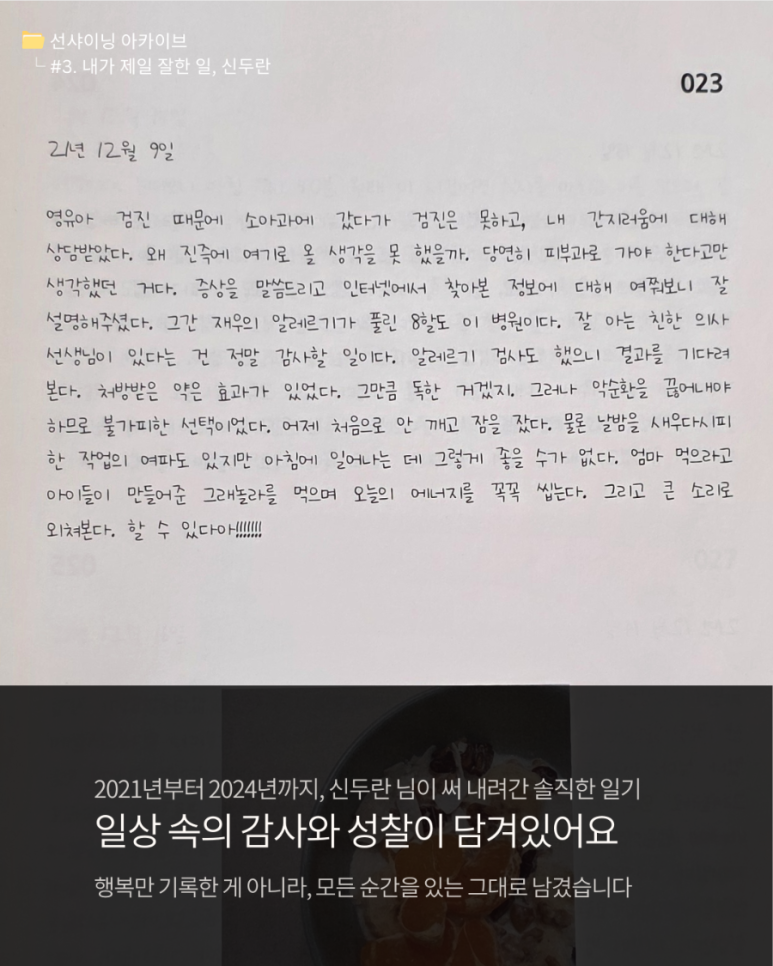 선샤이닝 아카이브
└ #3. 내가 제일 잘한 일, 신두란
023
21년 12월 9일
영유아 검진 때문에 소아과에 갔다가 검진은 못하고, 내 간지러움에 대해
상담받았다. 왜 진즉에 여기로 올 생각을 못 했을까. 당연히 피부과로 가야 한다고만
생각했던 거다. 증상을 말씀드리고 인터넷에서 찾아본 정보에 대해 여쭤보니 잘
설명해주셨다. 그간 재우의 알레르기가 풀린 8할도 이 병원이다. 잘 아는 친한 의사
선생님이 있다는 건 정말 감사할 일이다. 알레르기 검사도 했으니 결과를 기다려
본다. 처방받은 약은 효과가 있었다. 그만큼 독한 거겠지. 그러나 악순환을 끊어내야
하므로 불가피한 선택이었다. 어제 처음으로 안 깨고 잠을 잤다. 물론 날밤을 새우다시피
한 작업의 여파도 있지만 아침에 일어나는 데 그렇게 좋을 수가 없다. 엄마 먹으라고
아이들이 만들어준 그래놀라를 먹으며 오늘의 에너지를 꼭꼭 씹는다. 그리고 큰 소리로
외쳐본다. 할 수 있다아!!!!!!!
027
2021년부터 2024년까지, 신두란 님이 써 내려간 솔직한 일기
일상 속의 감사와 성찰이 담겨있어요
행복만 기록한 게 아니라, 모든 순간을 있는 그대로 남겼습니다